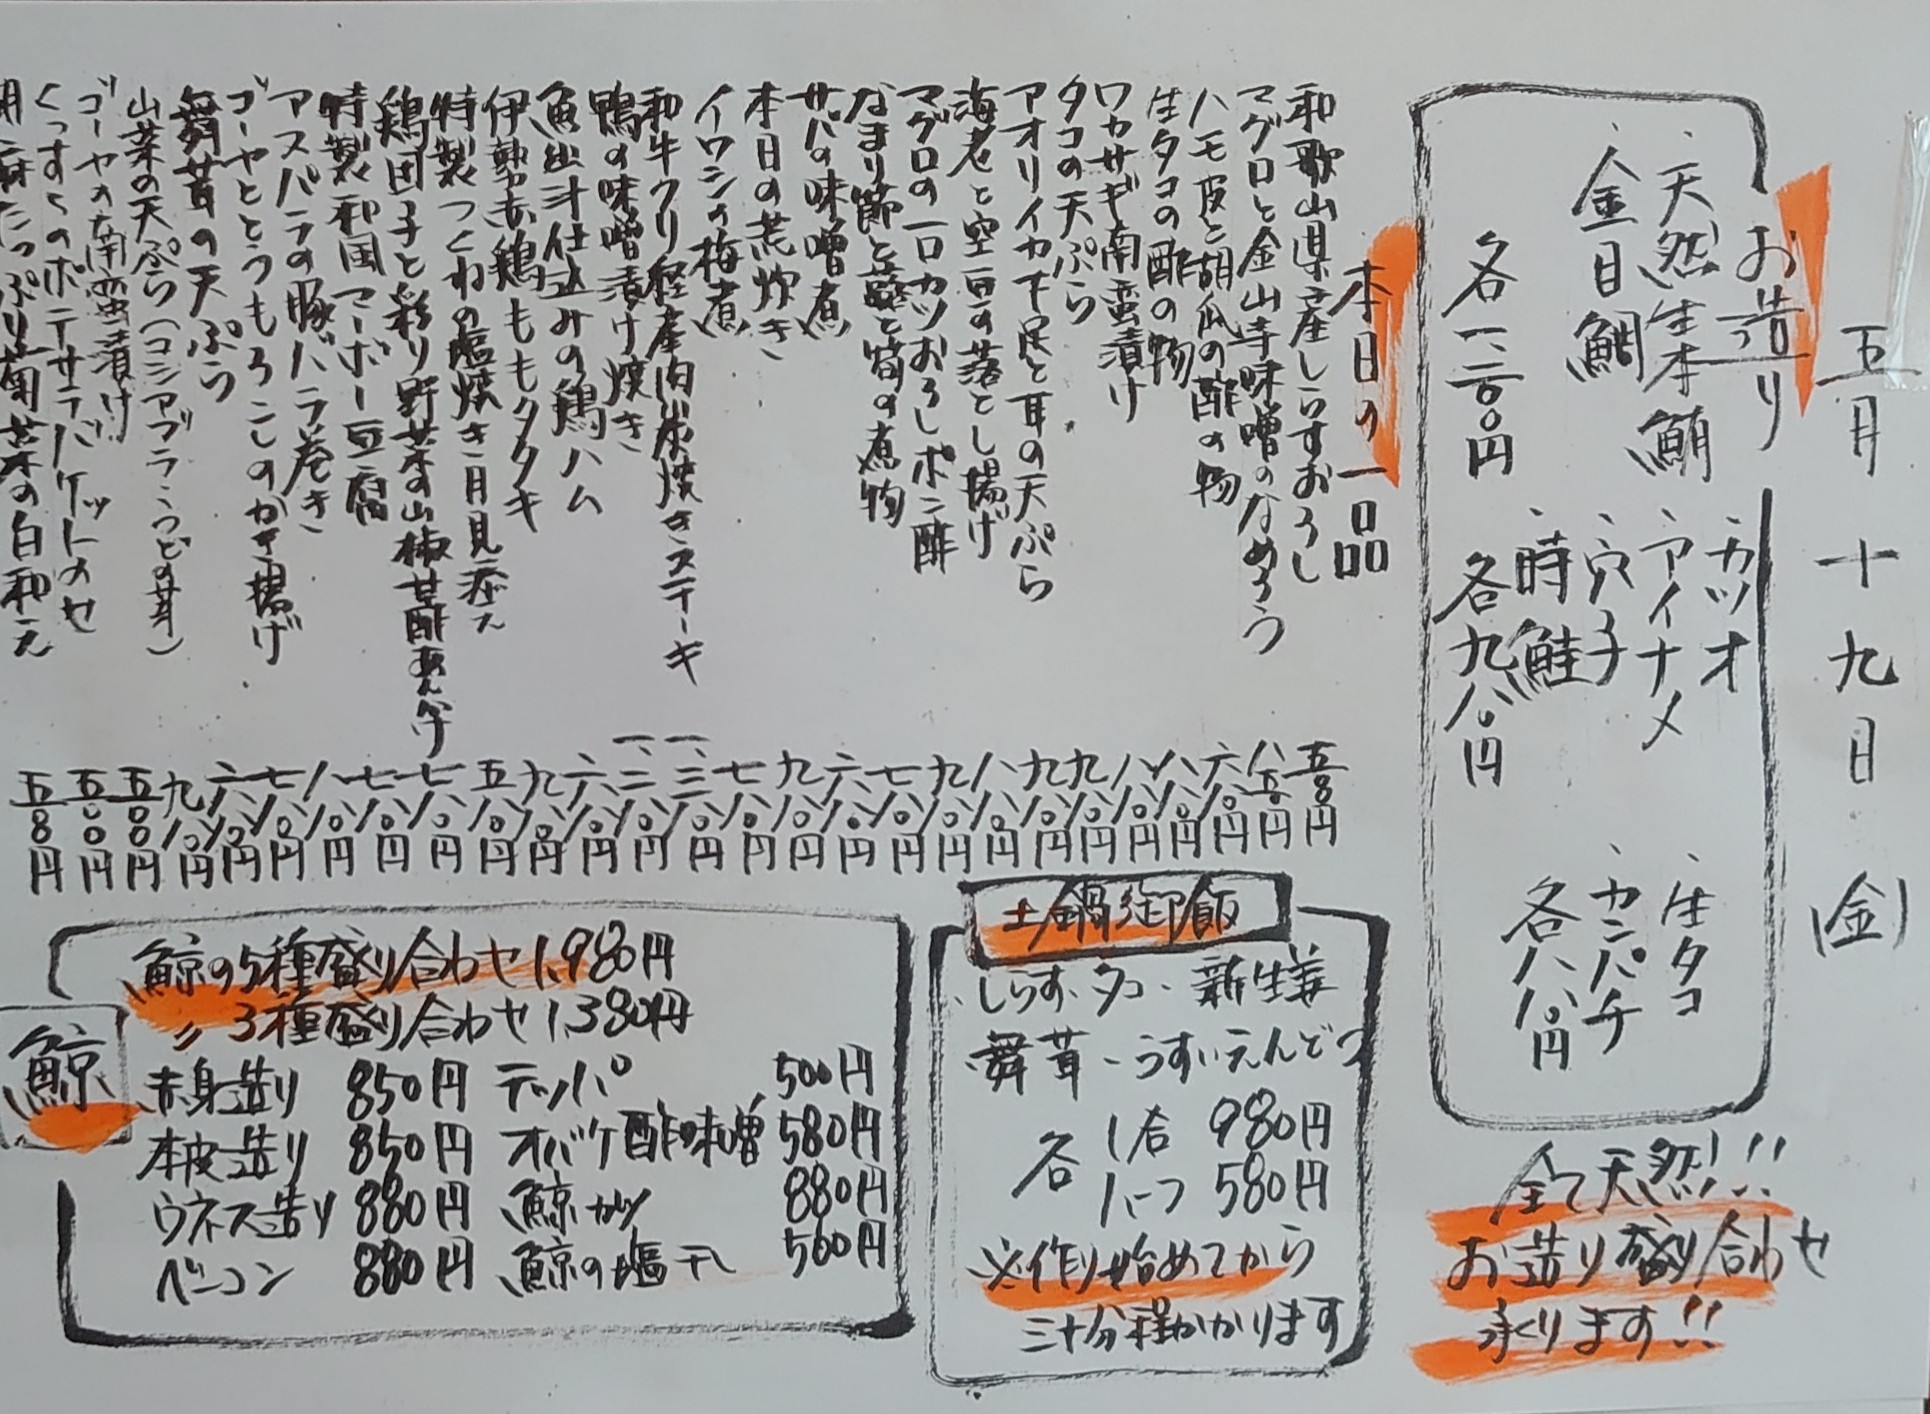 五月十九日(金)
お造り
、天然生本鮪
、金目鯛
各一二〇〇円
、カツオ
、アイナメ
、穴子
、時鮭
各九八〇円
、生タコ
、カンパチ
各八八〇円
全て天然!!
お造り盛り合わせ
承ります!!
本日の一品
和歌山県産しらすおろし 五八〇円
マグロと金山寺味噌のなめろう 八五〇円
ハモ皮と胡瓜の酢の物 六八〇円
生タコの酢の物 八八〇円
ワカサギ南蛮漬け 八八〇円
タコの天ぷら 九八〇円
アオリイカ下足と耳の天ぷら 九八〇円
海老と空豆の落とし揚げ 八八〇円
マグロの一口カツおろしポン酢 九八〇円
なまり節と蕗と筍の煮物 七八〇円
サバの味噌煮 六八〇円
本日の荒炊き 九八〇円
イワシの梅煮 七八〇円
和牛クリ経産肉炭焼きステーキ 一、三八〇円
鴨の味噌漬け焼き 一、二八〇円
魚出汁仕込みの鶏ハム 六八〇円
伊勢赤鶏ももタタキ 九八〇円
特製つくねの塩焼き月見添え 五八〇円
鶏団子と彩り野菜の山椒甘酢あんかけ 七八〇円
特製和国マーボー豆腐 七八〇円
アスパラの豚バラ巻き 八八〇円
ゴーヤととうもろこしのかき揚げ 七八〇円
舞茸の天ぷら 六八〇円
山菜の天ぷら(コシアブラ・うどの芽) 九八〇円
ゴーヤの南蛮漬け 五〇〇円
くっすらのポテサラバケットのせ 五〇〇円
胡麻たっぷり菊菜の白和え 五八〇円
土鍋御飯
、しらす、タコ、新生姜
舞茸、うすいえんどう
各 1合 980円
1/2 580円
※作り始めてから
三十分程かかります
鯨
鯨の5種盛り合わせ 1,980円
〃 3種盛り合わせ 1,380円
赤身造り 850円 テッパ 500円
本皮造り 850円 オバケ酢味噌 580円
ウネス造り 880円 鯨カツ 880円
ベーコン 880円 鯨の塩干し 500円